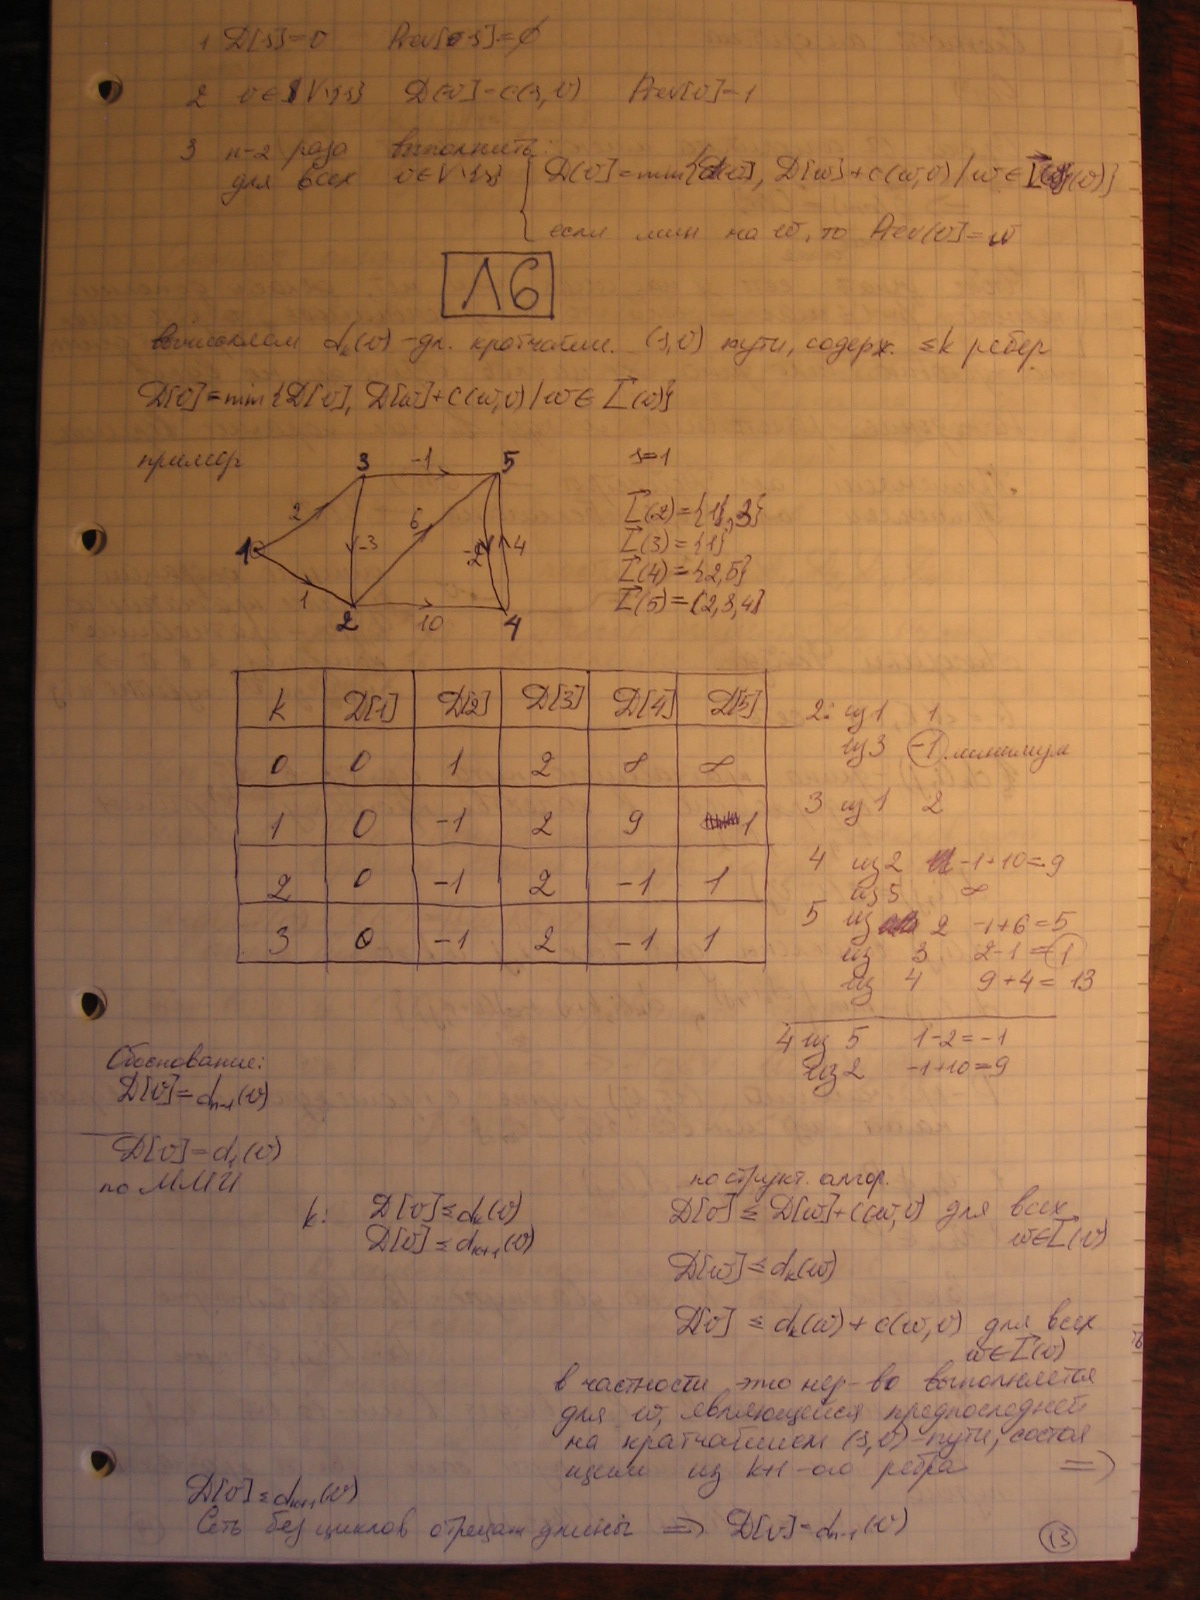 1 D[s]=0 Prev[s]=∅
2 v∈V\{s} D[v]=c(s,v) Prev[v]=1
3 n-2 раза выполнить
для всех v∈V\{s} { D[v]=min{D[v], D[w]+c(w,v) / w∈I⃗(v)}
если мин на w, то Prev[v]=w
Л6
вычисляем dₖ(v) -дл. кратчайш. (s,v) пути, содерж. ≤k ребер
D[v]=min{D[v], D[w]+c(w,v) / w∈I⃗(v)}
пример
3 -1 5
2
6
1 -3 -2 4
1
2 10 4
s=1
I⃗(2)={1,3}
I⃗(3)={1}
I⃗(4)={2,5}
I⃗(5)={2,3,4}
k D[1] D[2] D[3] D[4] D[5]
0 0 1 2 ∞ ∞
1 0 -1 2 9 1
2 0 -1 2 -1 1
3 0 -1 2 -1 1
2: из 1 1
из 3 -1 минимум
3 из 1 2
4 из 2 -1+10=9
из 5 ∞
5 из 2 -1+6=5
из 3 2-1=1
из 4 9+4=13
4 из 5 1-2=-1
из 2 -1+10=9
Обоснование:
D[v]=dₙ₋₁(v)
D[v]=d₁(v)
по ММИ
k: D[v]≤dₖ(v)
D[v]≤dₖ₊₁(v)
по структ. алгор.
D[v]≤D[w]+c(w,v) для всех
w∈I⃗(v)
D[w]≤dₖ(w)
D[v]≤dₖ(w)+c(w,v) для всех
w∈I⃗(v)
в частности это нер-во выполняется
для w, являющейся предпоследней
на кратчайшем (s,v)-пути, состоя
щем из k+1-ого ребра ⇒
D[v]≤dₖ₊₁(v)
Сеть без циклов отрицат длины ⇒ D[v]=dₙ₋₁(v)
13